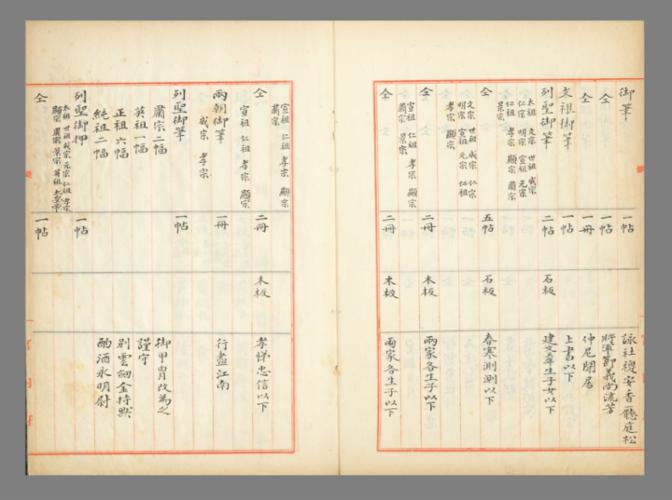 御筆 一帖 詠社稷宰香廳庭松
仝 一帖
仝 一冊 仲尼閒居
文祖御筆 一帖 上書以下
列聖御筆 二帖 石板 建文章生子女以下
太祖 文宗 世祖 成宗
仁宗 明宗 宣祖 元宗
仁祖 孝宗 顯宗 肅宗
景宗
仝 五帖 石板 春寒測測以下
文宗 世祖 成宗 仁宗
明宗 宣祖 元宗 仁祖
孝宗 顯宗
仝 二冊 木板 兩家各生子以下
宣祖 仁祖 孝宗 顯宗
肅宗 景宗
仝 二冊 木板 兩家各生子以下
宣祖 仁祖 孝宗 顯宗
肅宗
仝 二冊 木板 孝悌忠信以下
宣祖 仁祖 孝宗 顯宗
兩朝御筆 一冊 行盡江南
成宗 孝宗
列聖御筆 一帖
肅宗二幅 御甲胄改為之
英祖一幅 謹守
正祖六幅
純祖二幅 酌酒永明尉
列聖御押 一帖
仝 一帖